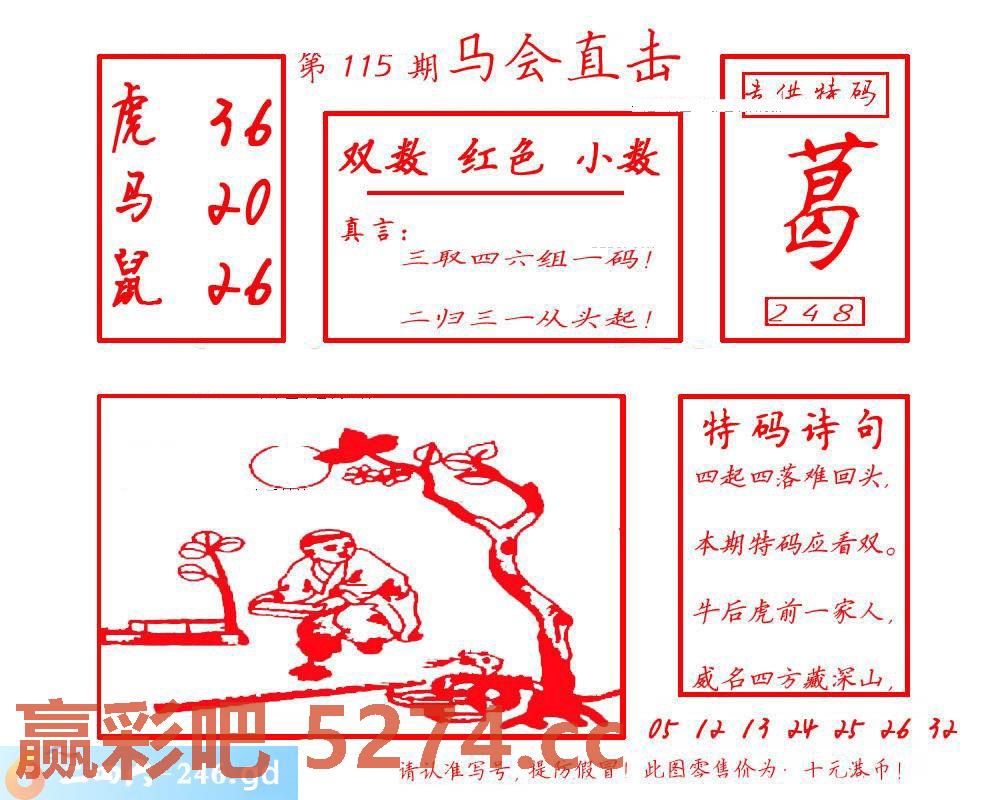 第 115 期 马会直击
虎 36
马 20
鼠 26
双数 红色 小数
真言：
三取四六组一码！
二归三一从头起！
供特码
葛
2 4 8
特码诗句
四起四落难回头，
本期特码应看双。
牛后虎前一家人，
威名四方藏深山，
05 12 13 24 25 26 32
赢彩吧 5274.cc
-246.gd
请认准写号，提防假冒！此图零售价为：十元港币！